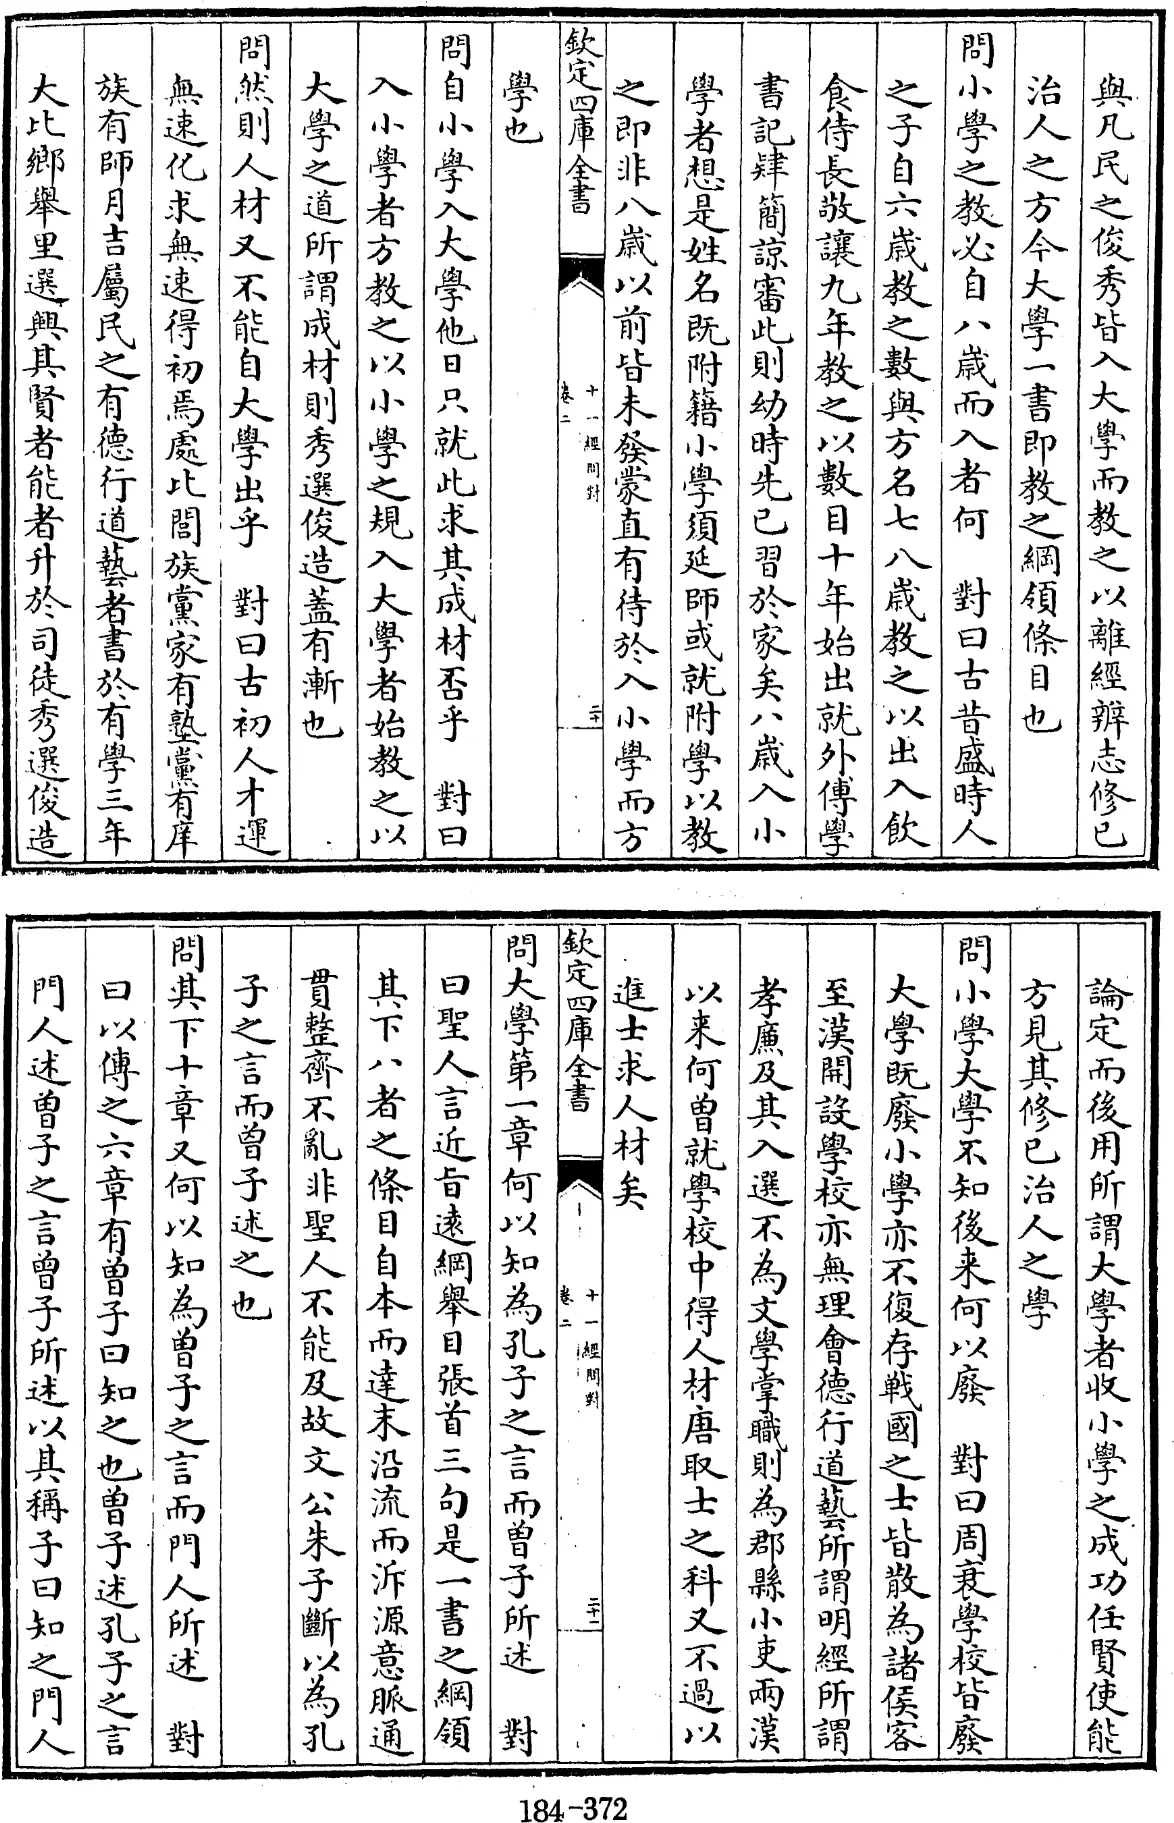 與凡民之俊秀皆入大學而教之以離經辨志修已
治人之方今大學一書即教之綱領條目也
問小學之教必自八嵗而入者何　對曰古昔盛時人
之子自六嵗教之數與方名七八嵗教之以出入飲
食侍長敬讓九年教之以數目十年始出就外傅學
書記肄簡諒審此則幼時先已習於家矣八嵗入小
學者想是姓名既附籍小學須延師或就附學以教
之即非八嵗以前皆未發蒙直有待於入小學而方
欽定四庫全書
十一經問對
卷二
二十
學也
問自小學入大學他日只就此求其成材否乎　對曰
入小學者方教之以小學之規入大學者始教之以
大學之道所謂成材則秀選俊造蓋有漸也
問然則人材又不能自大學出乎　對曰古初人才運
無速化求無速得初焉處比閭族黨家有塾黨有庠
族有師月吉屬民之有德行道藝者書於有學三年
大比鄉舉里選興其賢者能者升於司徒秀選俊造
論定而後用所謂大學者收小學之成功任賢使能
方見其修已治人之學
問小學大學不知後来何以廢　對曰周衰學校皆廢
大學既廢小學亦不復存戰國之士皆散為諸侯客
至漢開設學校亦無理會德行道藝所謂明經所謂
孝廉及其入選不為文學掌職則為郡縣小吏兩漢
以来何曽就學校中得人材唐取士之科又不過以
進士求人材矣
欽定四庫全書
十一經問對
卷二
二十一
問大學第一章何以知為孔子之言而曽子所述　對
曰聖人言近旨遠綱舉目張首三句是一書之綱領
其下八者之條目自本而達末沿流而泝源意脈通
貫整齊不亂非聖人不能及故文公朱子斷以為孔
子之言而曽子述之也
問其下十章又何以知為曽子之言而門人所述　對
曰以傳之六章有曽子曰知之也曽子述孔子之言
門人述曽子之言曽子所述以其稱子曰知之門人
184-372